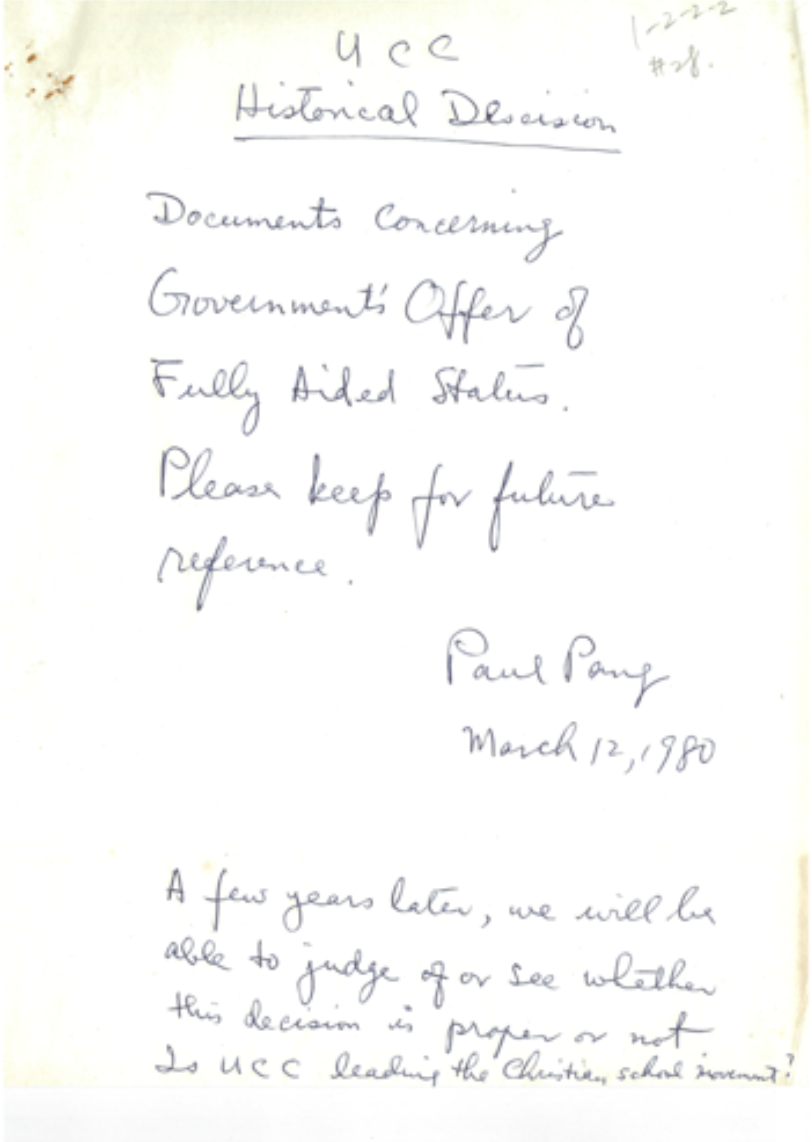 1-2-2-2
#28.
UCC
Historical Descision
Documents Concerning
Government's Offer of
Fully Aided Status.
Please keep for future
reference.
Paul Pang
March 12, 1980
A few years later, we will be
able to judge of or see whether
this decision is proper or not
Is UCC leading the Christian school movement?